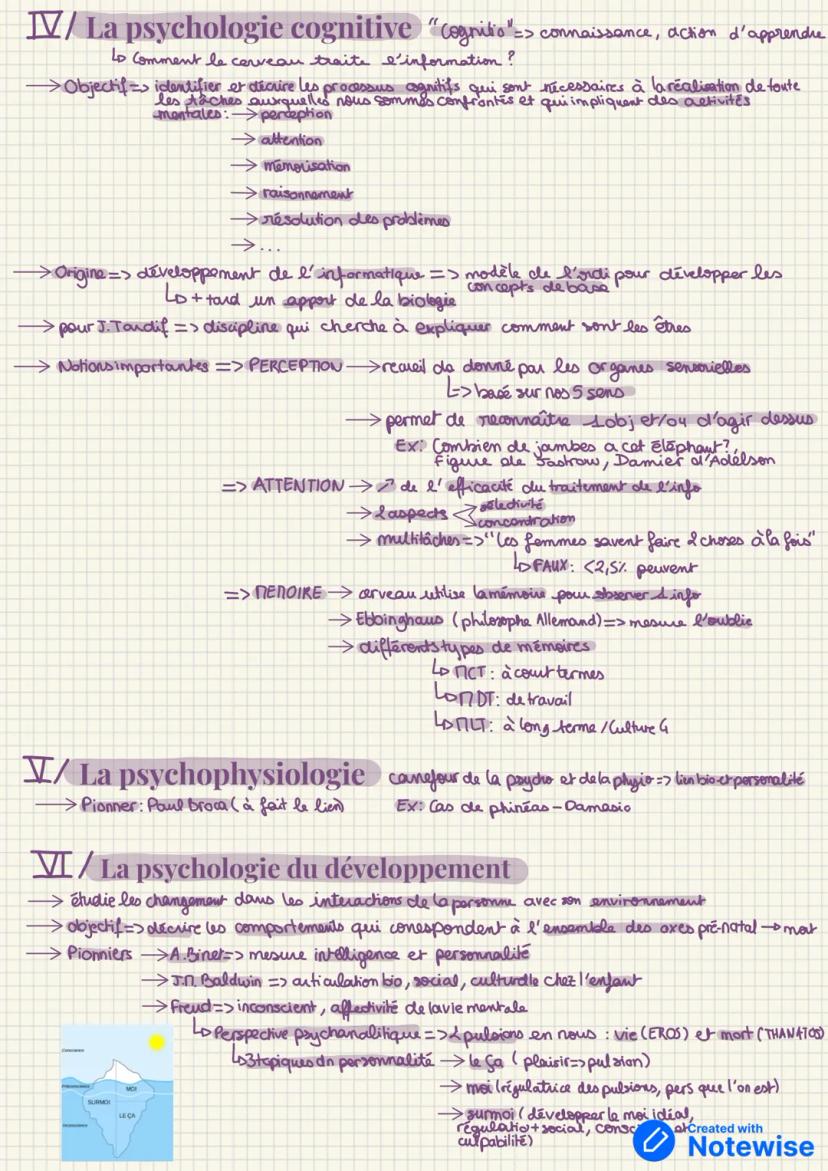 IV/ La psychologie cognitive "cognitio" => connaissance, action d'apprendre
↳ Comment le cerveau traite l'information ?
→ Objectif => identifier et décrire les processus cognitifs qui sont nécessaires à la réalisation de toute
les tâches auxquelles nous sommes confrontés et qui impliquent des activités
mentales : → perception
→ attention
→ mémorisation
→ raisonnement
→ résolution des problèmes
→ ...
→ Origine => développement de l'informatique => modèle de l'ordi pour développer les
concepts de base
↳ + tard un apport de la biologie
→ pour J.Tardif => discipline qui cherche à expliquer comment sont les êtres
→ Notions importantes => PERCEPTION → recueil da donné par les organes sensorielles
↳> basé sur nos 5 sens
→ permet de reconnaître 1 obj et/ou d'agir dessus
Ex: Combien de jambes a cet éléphant?,
Figure de Jastrow, Damier d'Adelson
=> ATTENTION → ↗ de l'efficacité du traitement de l'info
→ 2 aspects < sélectivité
concentration
→ multitâches => "les femmes savent faire 2 choses à la fois"
↳ FAUX : <2,5% peuvent
=> MEMOIRE → cerveau utilise la mémoire pour observer 1 info
→ Ebbinghaus (philosophe Allemand) => mesure l'oublie
→ différents types de mémoires
↳ MCT : à court termes
↳ MDT : de travail
↳ MLT : à long terme / Culture G
V/ La psychophysiologie carrefour de la psycho et de la physio => lien bio et personalité
→ Pionner : Paul broca ( à fait le lien) Ex: Cas de phinéas - Damasio
VI/ La psychologie du développement
→ étudie les changement dans les interactions de la personne avec son environnement
→ objectif => décrire les comportements qui correspondent à l'ensemble des axes pré-natal → mort
→ Pionniers → A.Binet => mesure intelligence et personnalité
→ J.M. Baldwin => articulation bio, social, culturelle chez l'enfant
→ Freud => inconscient, affectivité de la vie mentale
↳ Perspective psychanalitique => 2 pulsions en nous : vie (EROS) et mort (THANATOS)
↳ 3 topiques dn personnalité → le ça ( plaisir => pulsion)
→ moi (régulatrice des pulsions, pers que l'on est)
→ surmoi ( développer le moi idéal,
régulatio + social, consc et
culpabilité)
MOI
SURMOI
LE ÇA
Created with
Notewise